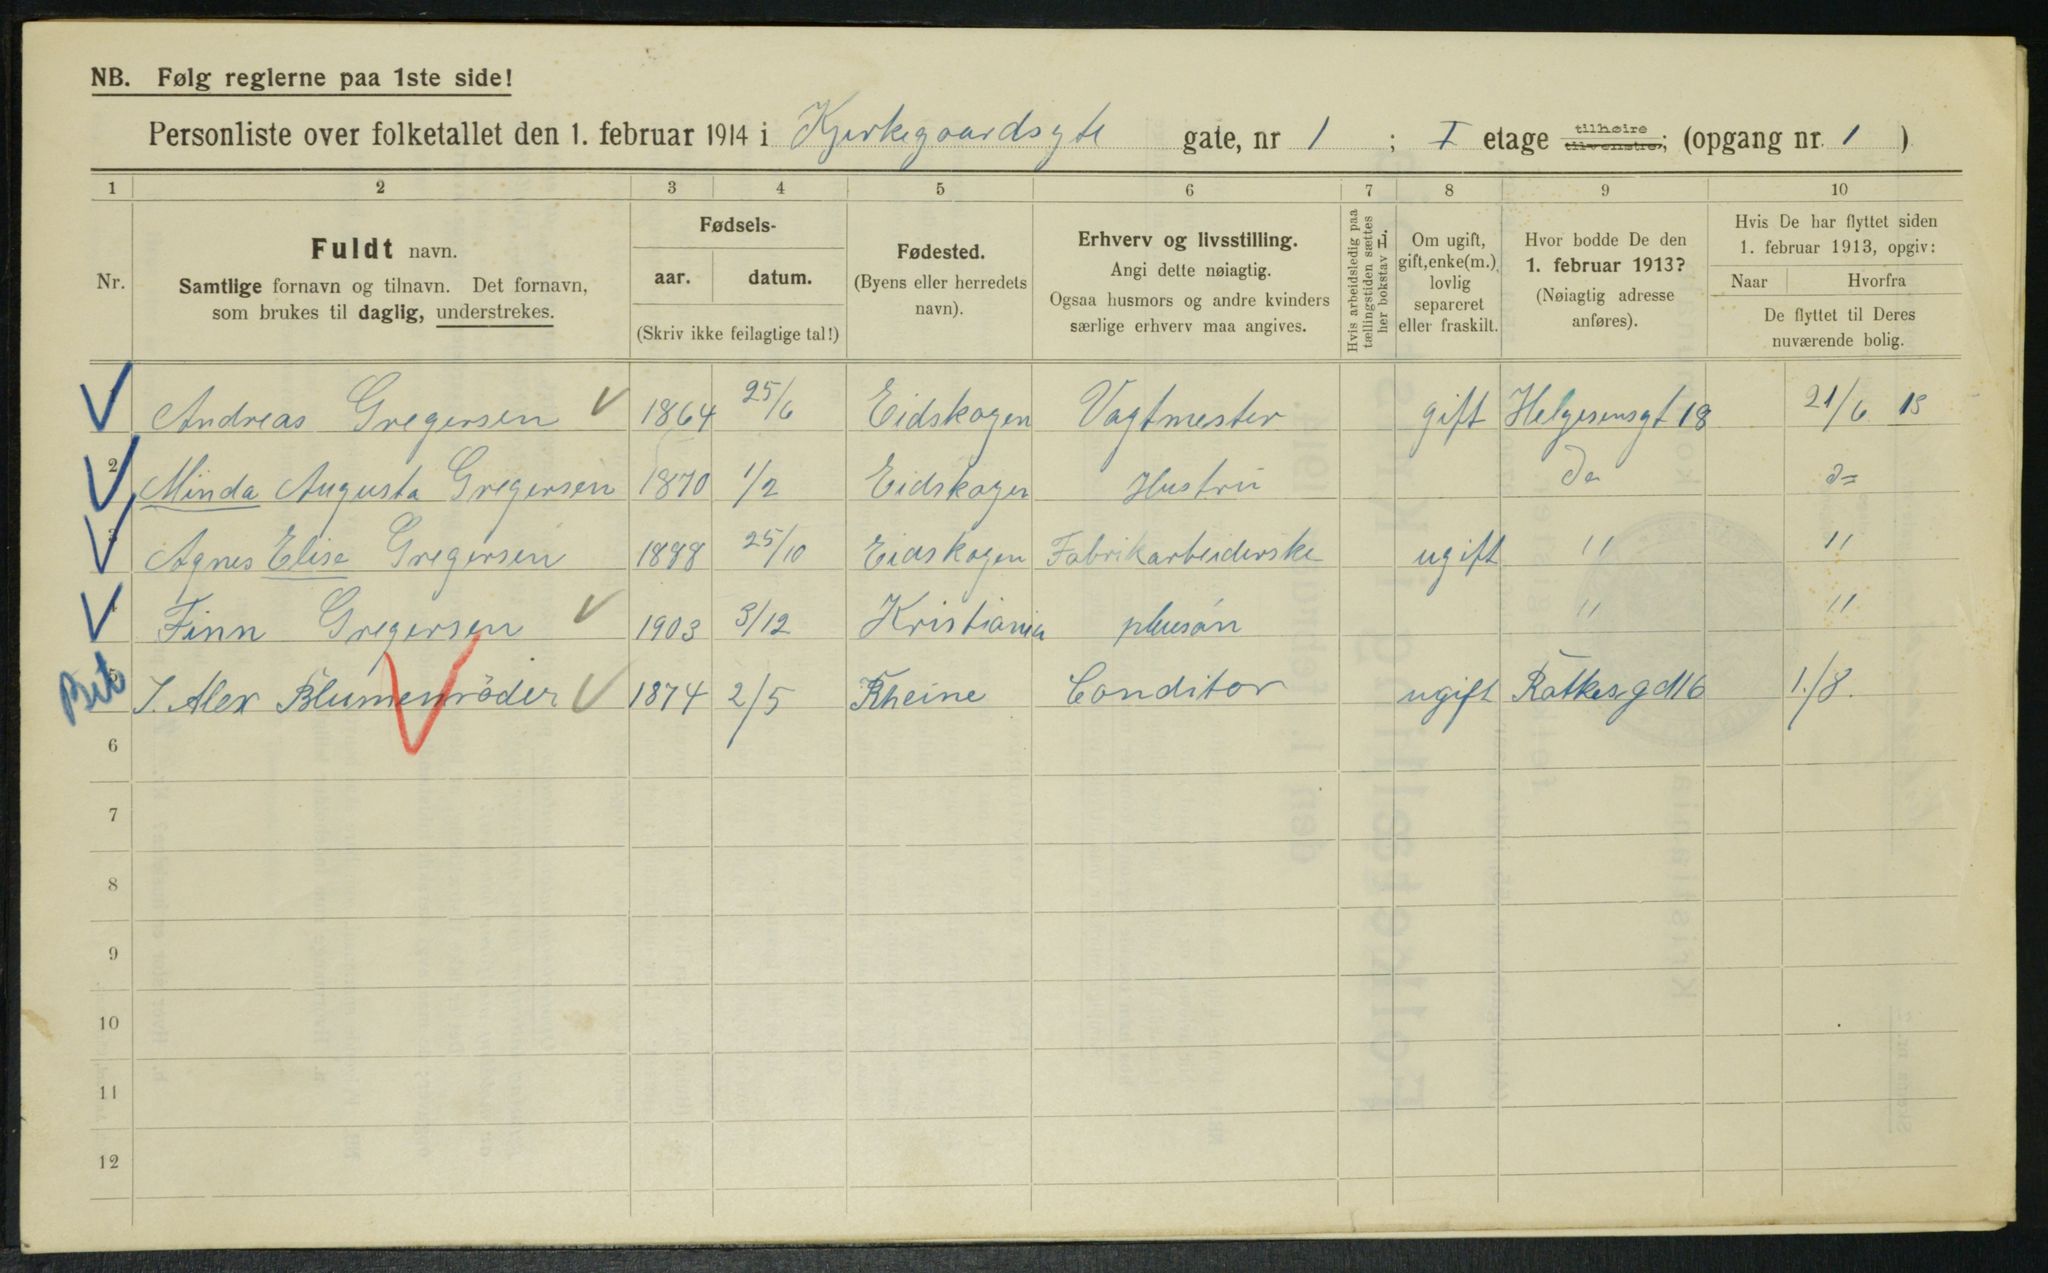 NB. Følg reglerne paa 1ste side!
Personliste over folketallet den 1. februar 1914 i Kjerkegaardsgte gate, nr 1 ; I etage tilhøire tilvenstre; (opgang nr. 1 )
1 2 3 4 5 6 7 8 9 10
Nr.
Fuldt navn.
Samtlige fornavn og tilnavn. Det fornavn,
som brukes til daglig, understrekes.
Fødsels-
aar. datum.
(Skriv ikke feilagtige tal!)
Fødested.
(Byens eller herredets
navn).
Erhverv og livsstilling.
Angi dette nøiagtig.
Ogsaa husmors og andre kvinders
særlige erhverv maa angives.
Hvis arbeidsledig paa
tællingstiden sættes
her bokstav L.
Om ugift,
gift, enke(m.),
lovlig
separeret
eller fraskilt.
Hvor bodde De den
1. februar 1913?
(Nøiagtig adresse
anføres).
Hvis De har flyttet siden
1. februar 1913, opgiv:
Naar Hvorfra
De flyttet til Deres
nuværende bolig.
Andreas Gregersen 1864 25/6 Eidskogen Vagtmester gift Helgesensgt 18 21/6 13
2 Minda Augusta Gregersen 1870 1/2 Eidskogen Hustru do do
3 Agnes Elise Gregersen 1888 25/10 Eidskogen Fabrikarbeiderske ugift " "
4 Finn Gregersen 1903 3/12 Kristiania plusøn " "
5 J. Alex Blumenröder 1874 2/5 Rheine Conditor ugift 1./8.
6
7
8
9
10
11
12